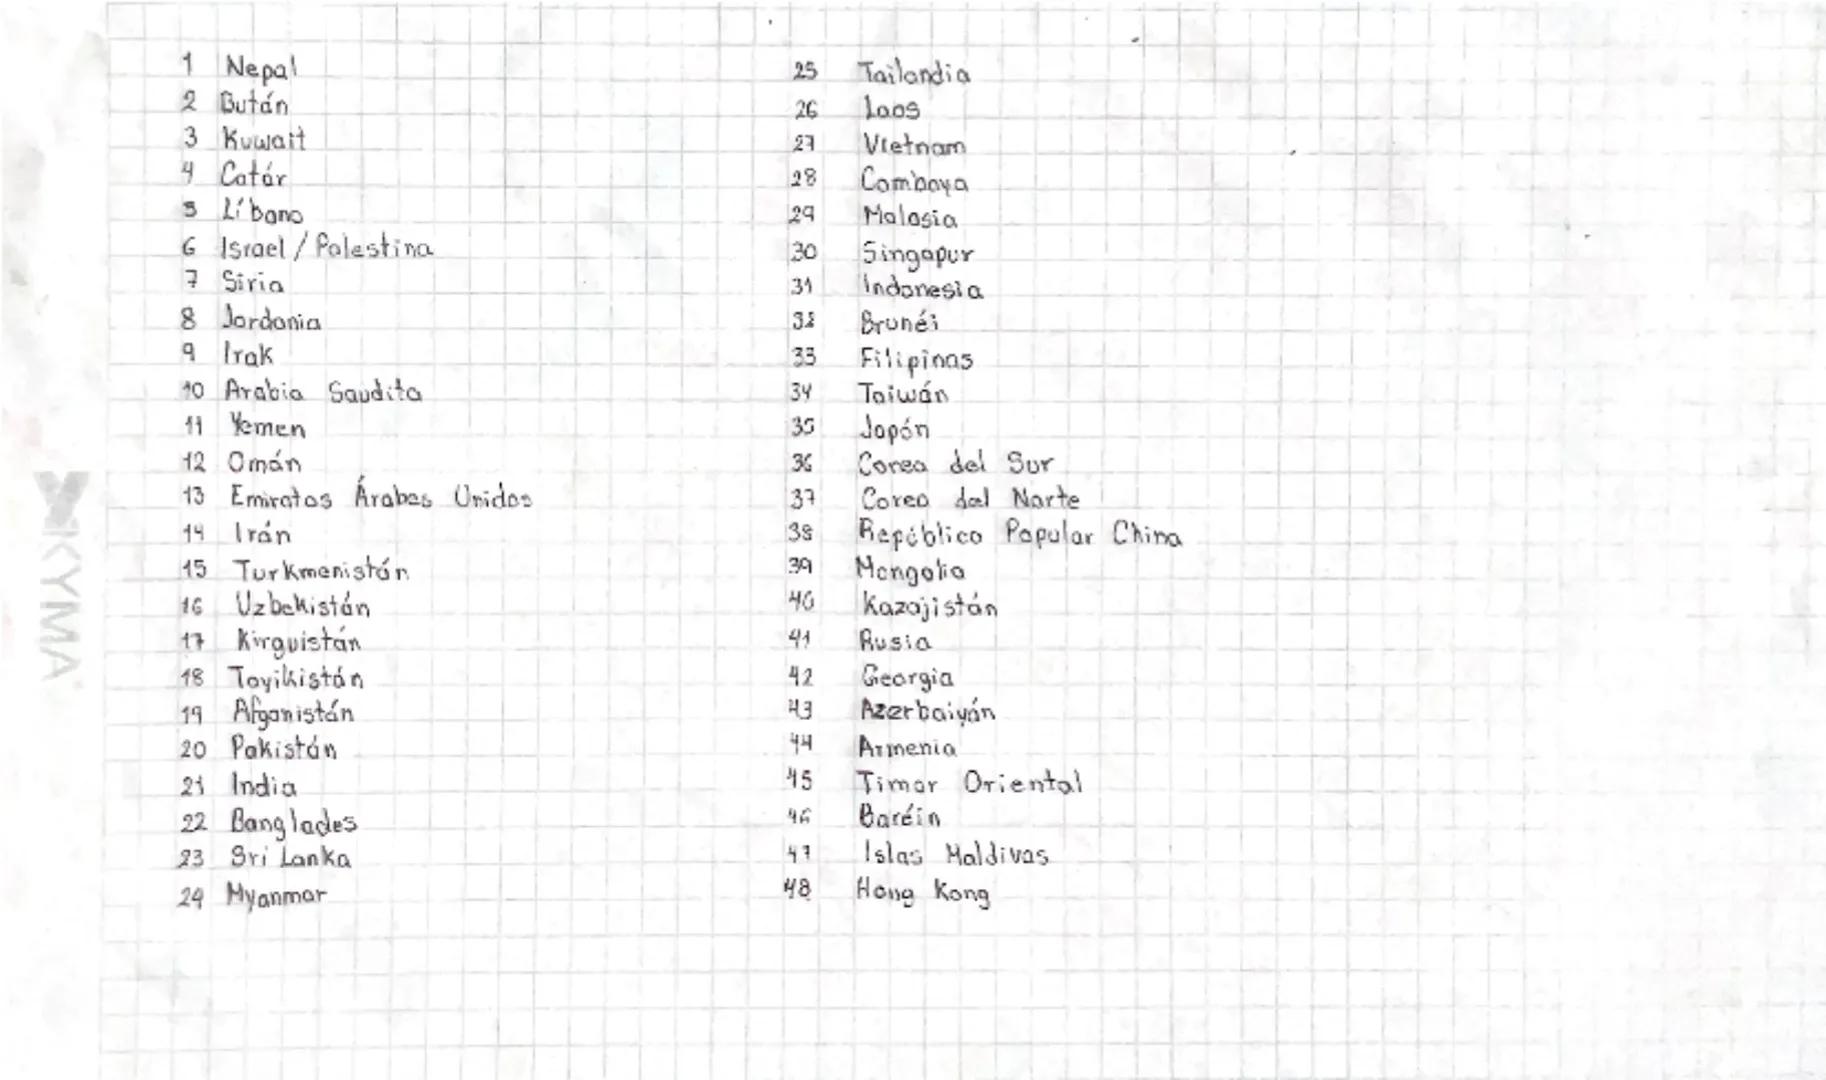 1 Nepal
2 Bután
3 Kuwait
4 Catár
5 Líbano
6 Israel / Palestina
7 Siria
8 Jordania
9 Irak
10 Arabia Saudita
11 Yemen
12 Omán
13 Emiratos Árabes Unidos
14 Irán
15 Turkmenistán
16 Uzbekistán
17 Kirguistán
18 Tayikistán
19 Afganistán
20 Pakistán
21 India
22 Banglades
23 Sri Lanka
24 Myanmar
25 Tailandia
26 Laos
27 Vietnam
28 Camboya
29 Malasia
30 Singapur
31 Indonesia
32 Brunéi
33 Filipinas
34 Taiwán
35 Japón
36 Corea del Sur
37 Corea del Norte
38 República Popular China
39 Mongolia
40 Kazajistán
41 Rusia
42 Georgia
43 Azerbaiyán
44 Armenia
45 Timor Oriental
46 Baréin
47 Islas Maldivas
48 Hong Kong
KYMA